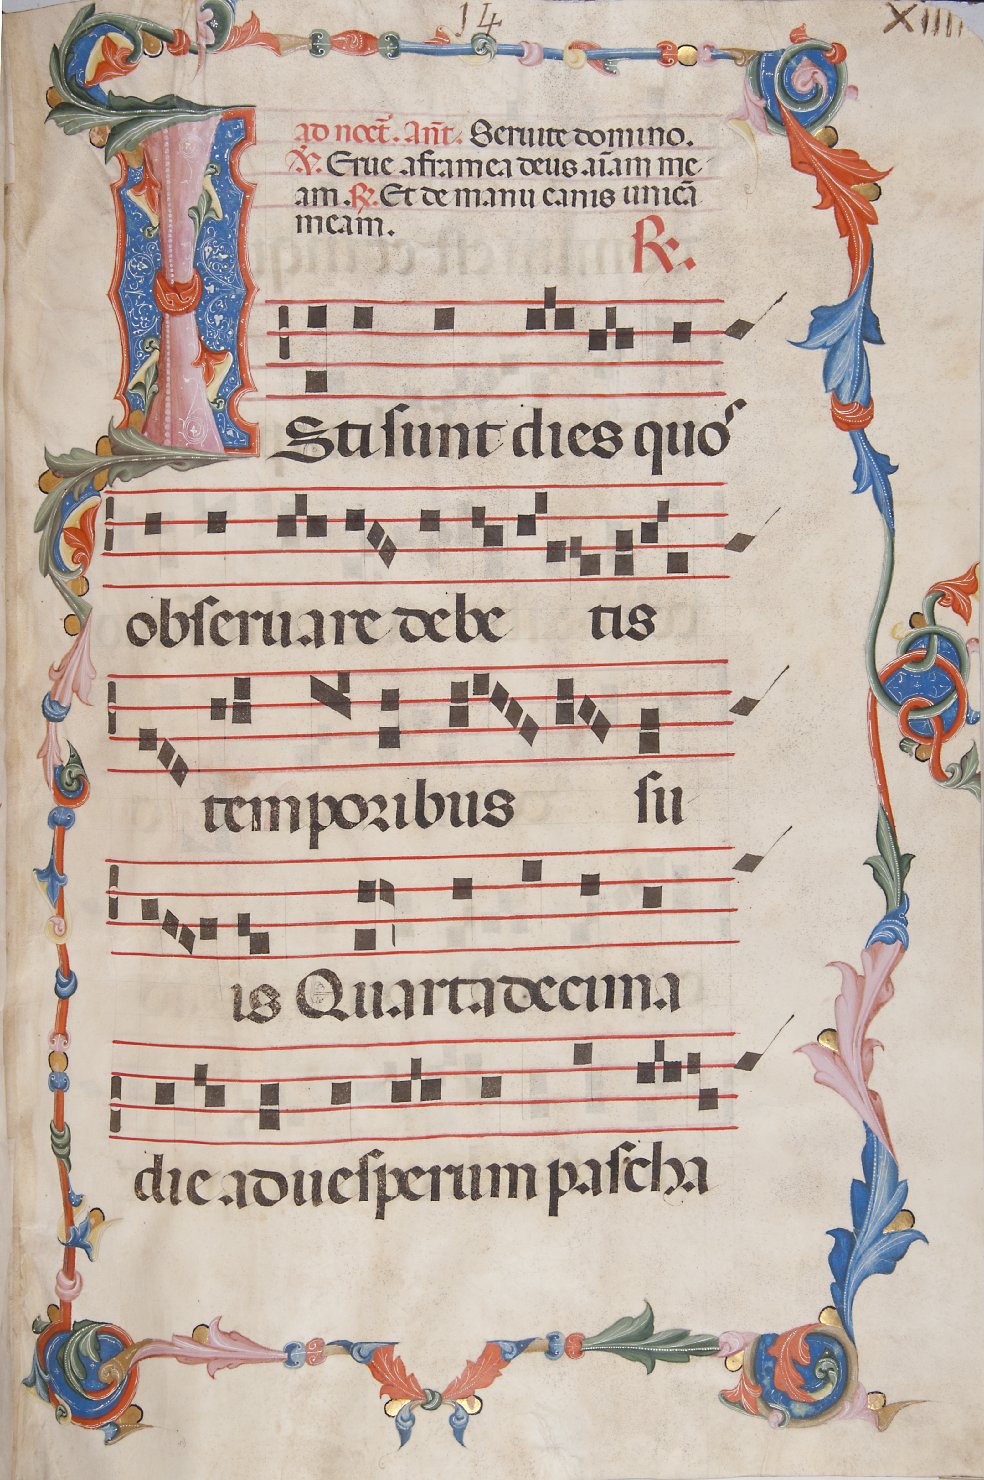 14
XIIII
ad noct̄. An̄t. Seruite domino.
℣. Erue a framea deus ai᷃am me
am. ℟. Et de manu canis unicā
meam.
℟.
Isti sunt dies quos
obseruare debe tis
temporibus su
is Quarta decima
die ad uesperum pascha